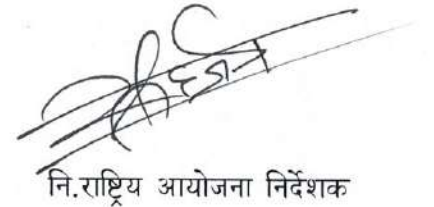 नि.राष्ट्रिय आयोजना निर्देशक